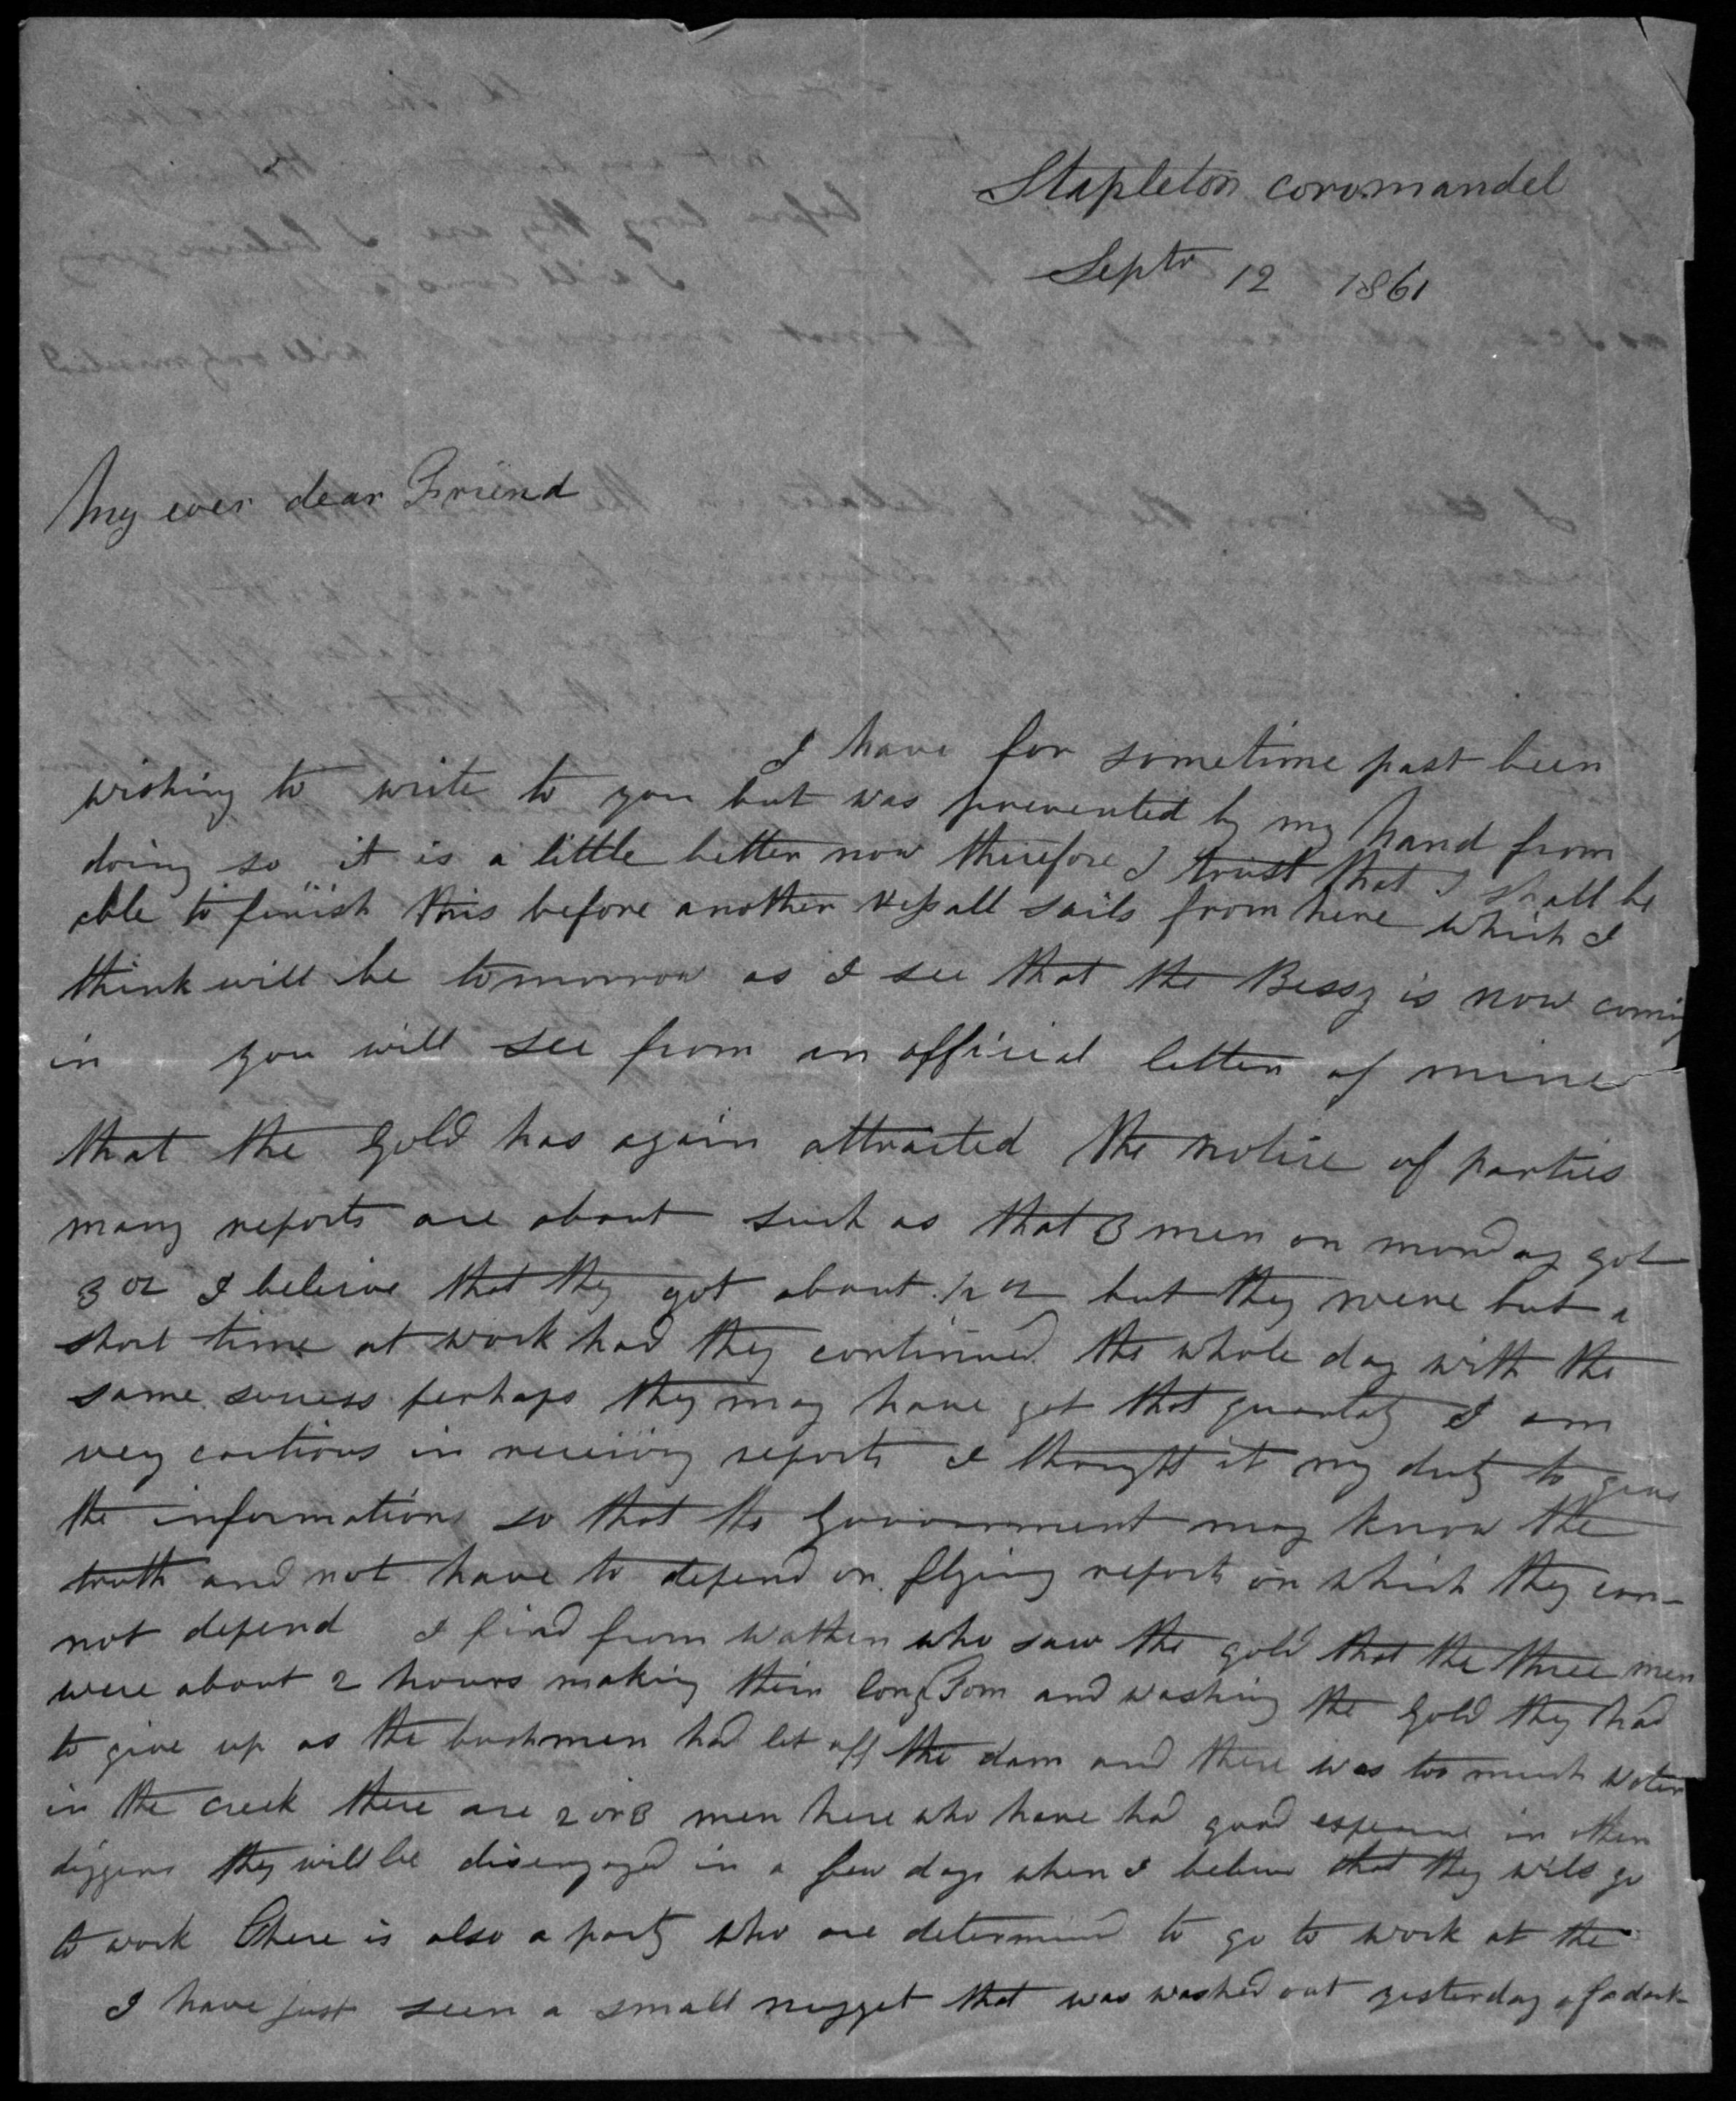 Stapleton coromandel
Septr 12 1861
My ever dear Friend
I have for sometime past been
wishing to write to you but was prevented by my hand from
doing so it is a little better now therefore I trust that I shall be
able to finish this before another vessall sails from here which I
think will be tomorrow as I see that the Bessy is now coming
in you will see from an official letter of mine
that the Gold has again attracted the notice of parties
many reports are about such as that 3 men on monday got
3 oz I beleive that they got about 1/2 oz but they were but a
short time at work had they continued the whole day with the
same success perhaps they may have got that quantaty I am
very cautious in receiving reports I thought it my duty to give
the information so that the Government may know the
truth and not have to depend on flying reports on which they can-
not depend I find from Wathen who saw the gold that the three men
were about 2 hours making their long Tom and washing the Gold they had
to give up as the bushmen had let off the dam and there was too much water
in the creek there are 2 or 3 men here who have had good in other
diggens they will be disengaged in a few days when I beleive that they will go
to work There is also a party who are determined to go to work at the
I have just seen a small nugget that was washed out yesterday of a dark